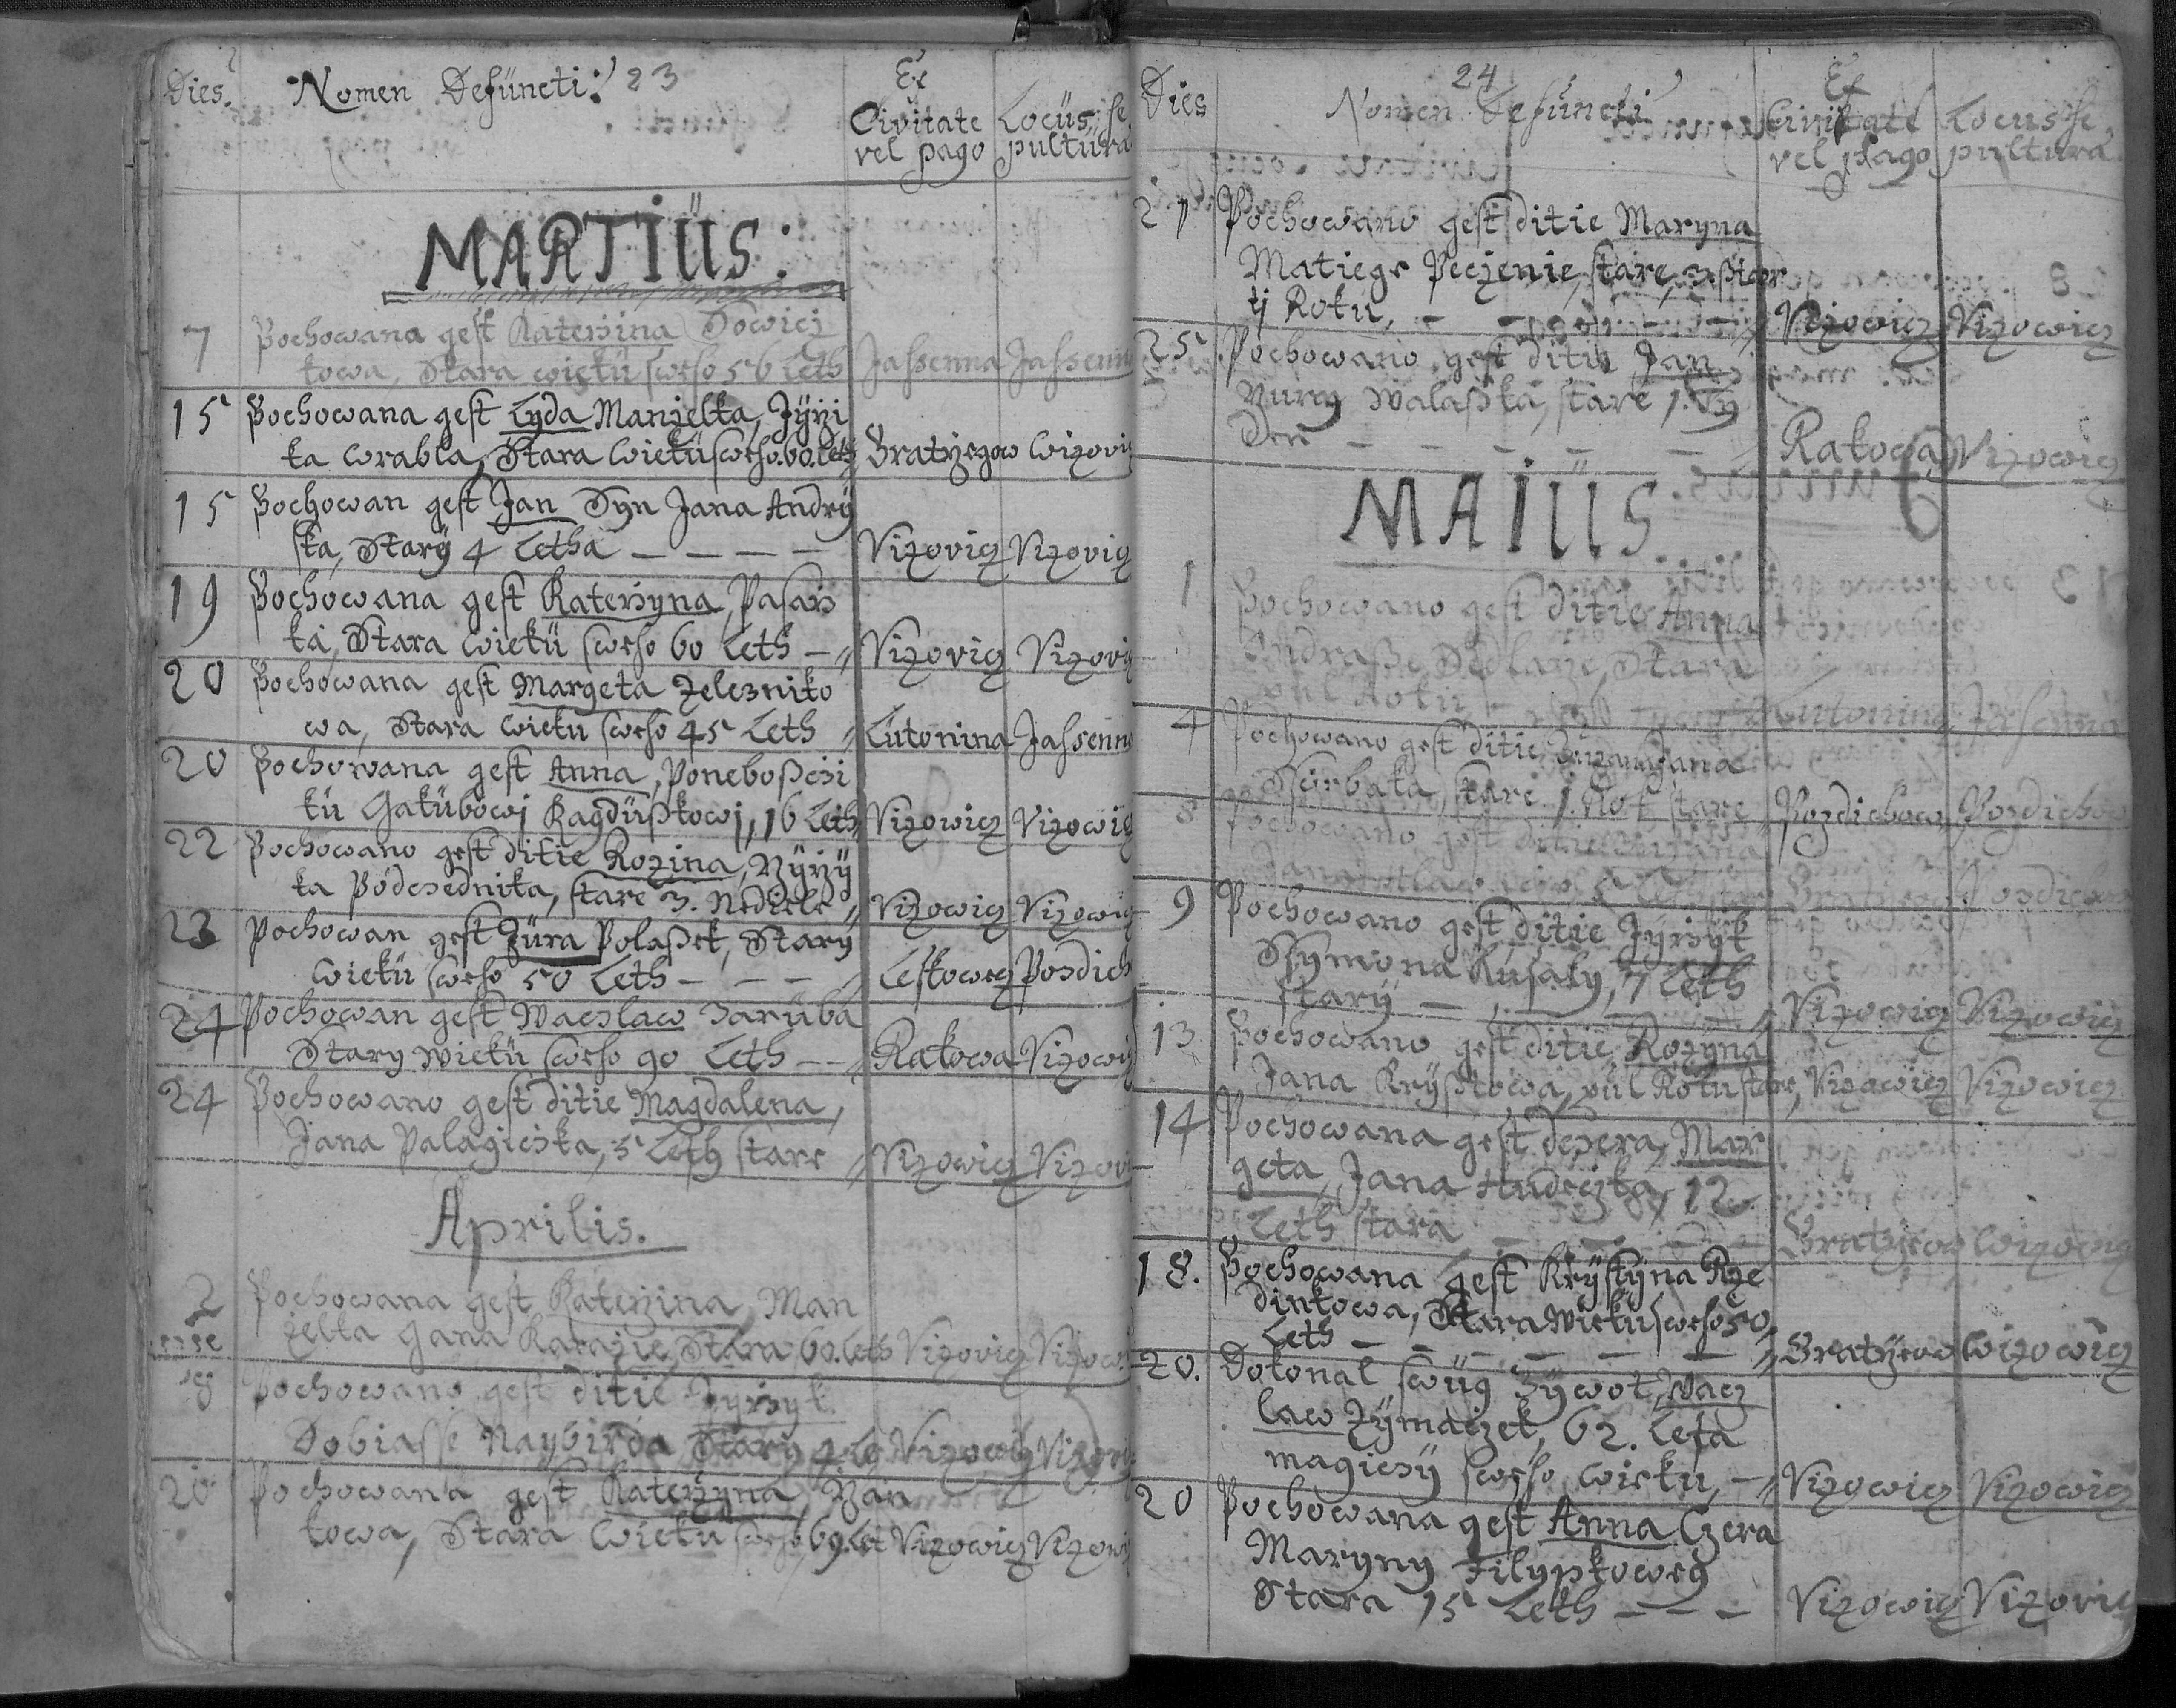 Dies. Nomen Defüncti: 23 Ex
Civitate Locüs se
vel pago pultura
MARTIÜS:
7 Pochowana gest Katerzina
kowa, Stara wieku sweho 56 Leth Jassenna Jassenna
15 Pochowana gest Lyda Manzelka, Jÿrzi
ka wrabla, Stara Wieku sweho. 60. Leth Bratrzegow Wizovi
15 Pochowan gest Jan Syn Jana Andrÿ
ska, Starÿ 4 Letha — — — — Vizovicz Vizovicz
19 Pochowana gest Katerzyna, Pasarz
ka, Stara Wieku sweho 60 Leth — Vizovicz Vizovi
20 Pochowana gest Margeta Zelezniko
wa, Stara Wieku sweho 45 Leth Lutonina Jassenn
20 Pochowana gest Anna, Poneboßczi
kü Gakübowi Ragdüßkowi, 16 Leth Vizowicz Vizowic
22 Pochowano gest ditie Rozina,
ka Podsednika, stare 3. Nediele Vizowicz Vizowic
23 Pochowan gest Jüra Polaßek, Starÿ
Wiekü sweho 50 Leth — — — Leskowez Pozdiech
24 Pochowan gest Waczlaw Zarüba
Stary Wiekü sweho 90 Leth — — Rakowa Vizowi
24 Pochowano gest ditie Magdalena,
Jana Palagiczka, 5 Leth stare Vizowicz Vizovi
Aprilis.
2 Pochowana gest Katerzina, Man
zelka Gana Karazie, Stara 60. Leth Vizovicz Vizow
8 Pochowano gest ditie Jyrzyk
Tobiasse Naybirda Starÿ 4 Vizowicz Vizow
20 Pochowana gest Katerzyna,
kowa, Stara Wieku sweho, 69. Let Vizowicz Vizow
Dies 24
Nomen Defüncti Ex
Civitate Locus se
vel pago pultura.
27 Pochowano gest ditie Maryna
Matiege Peczenie, stare,
ti Roku, — — — — Vizowicz Vizowicz
25. Pochowano gest ditie Jan
Walaßka, stare 1. Tÿ
den — — — — — Rakowa Vizowicz
MAIÜS.
1 Pochowano gest ditie Anna
Ondraße Sedlarze, Stara
pül Roku Lutonina Jassenna
4 Pochowano gest ditie
stare 1. Rok stare Pozdiechow Pozdiechow
8 Pochowano gest ditie
9 Pochowano gest ditie Jÿrzÿk
Ssymona Kusaly, 7 Leth
starÿ — — Vizowicz Vizowicz
13 Pochowano gest ditie Rozyna
Jana Kryßtowa, pül Roku stare, Vizowicz Vizowicz
14 Pochowana gest dczera, Mar
geta, Jana Andrczka, 12
Leth stara — Bratrzeow Wizowicz
18. Pochowana gest Krÿstÿna Rze
dinkowa, Stara Wieku sweho 50
Leth — — — — — — Bratrzeow Wizowicz
20. Dokonal swüg Zÿwot, Wacz
law Zÿmaczek, 62. Leta
magiczÿ sweho Wieku, — Vizowicz Vizowicz
20 Pochowana gest Anna Czera
Maryny Filypkowey
Stara 15 Leth — — — Vizowicz Vizovic